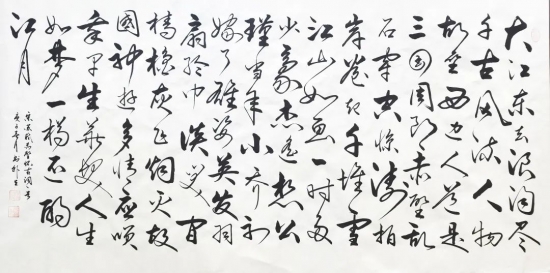 大江东去浪淘尽
千古风流人物
故垒西边人道是
三国周郎赤壁乱
石穿空惊涛拍
岸卷起千堆雪
江山如画一时多
少豪杰遥想公
瑾当年小乔初
嫁了雄姿英发羽
扇纶巾谈笑间
樯橹灰飞烟灭故
国神游多情应笑
我早生华发人生
如梦一樽还酹
江月